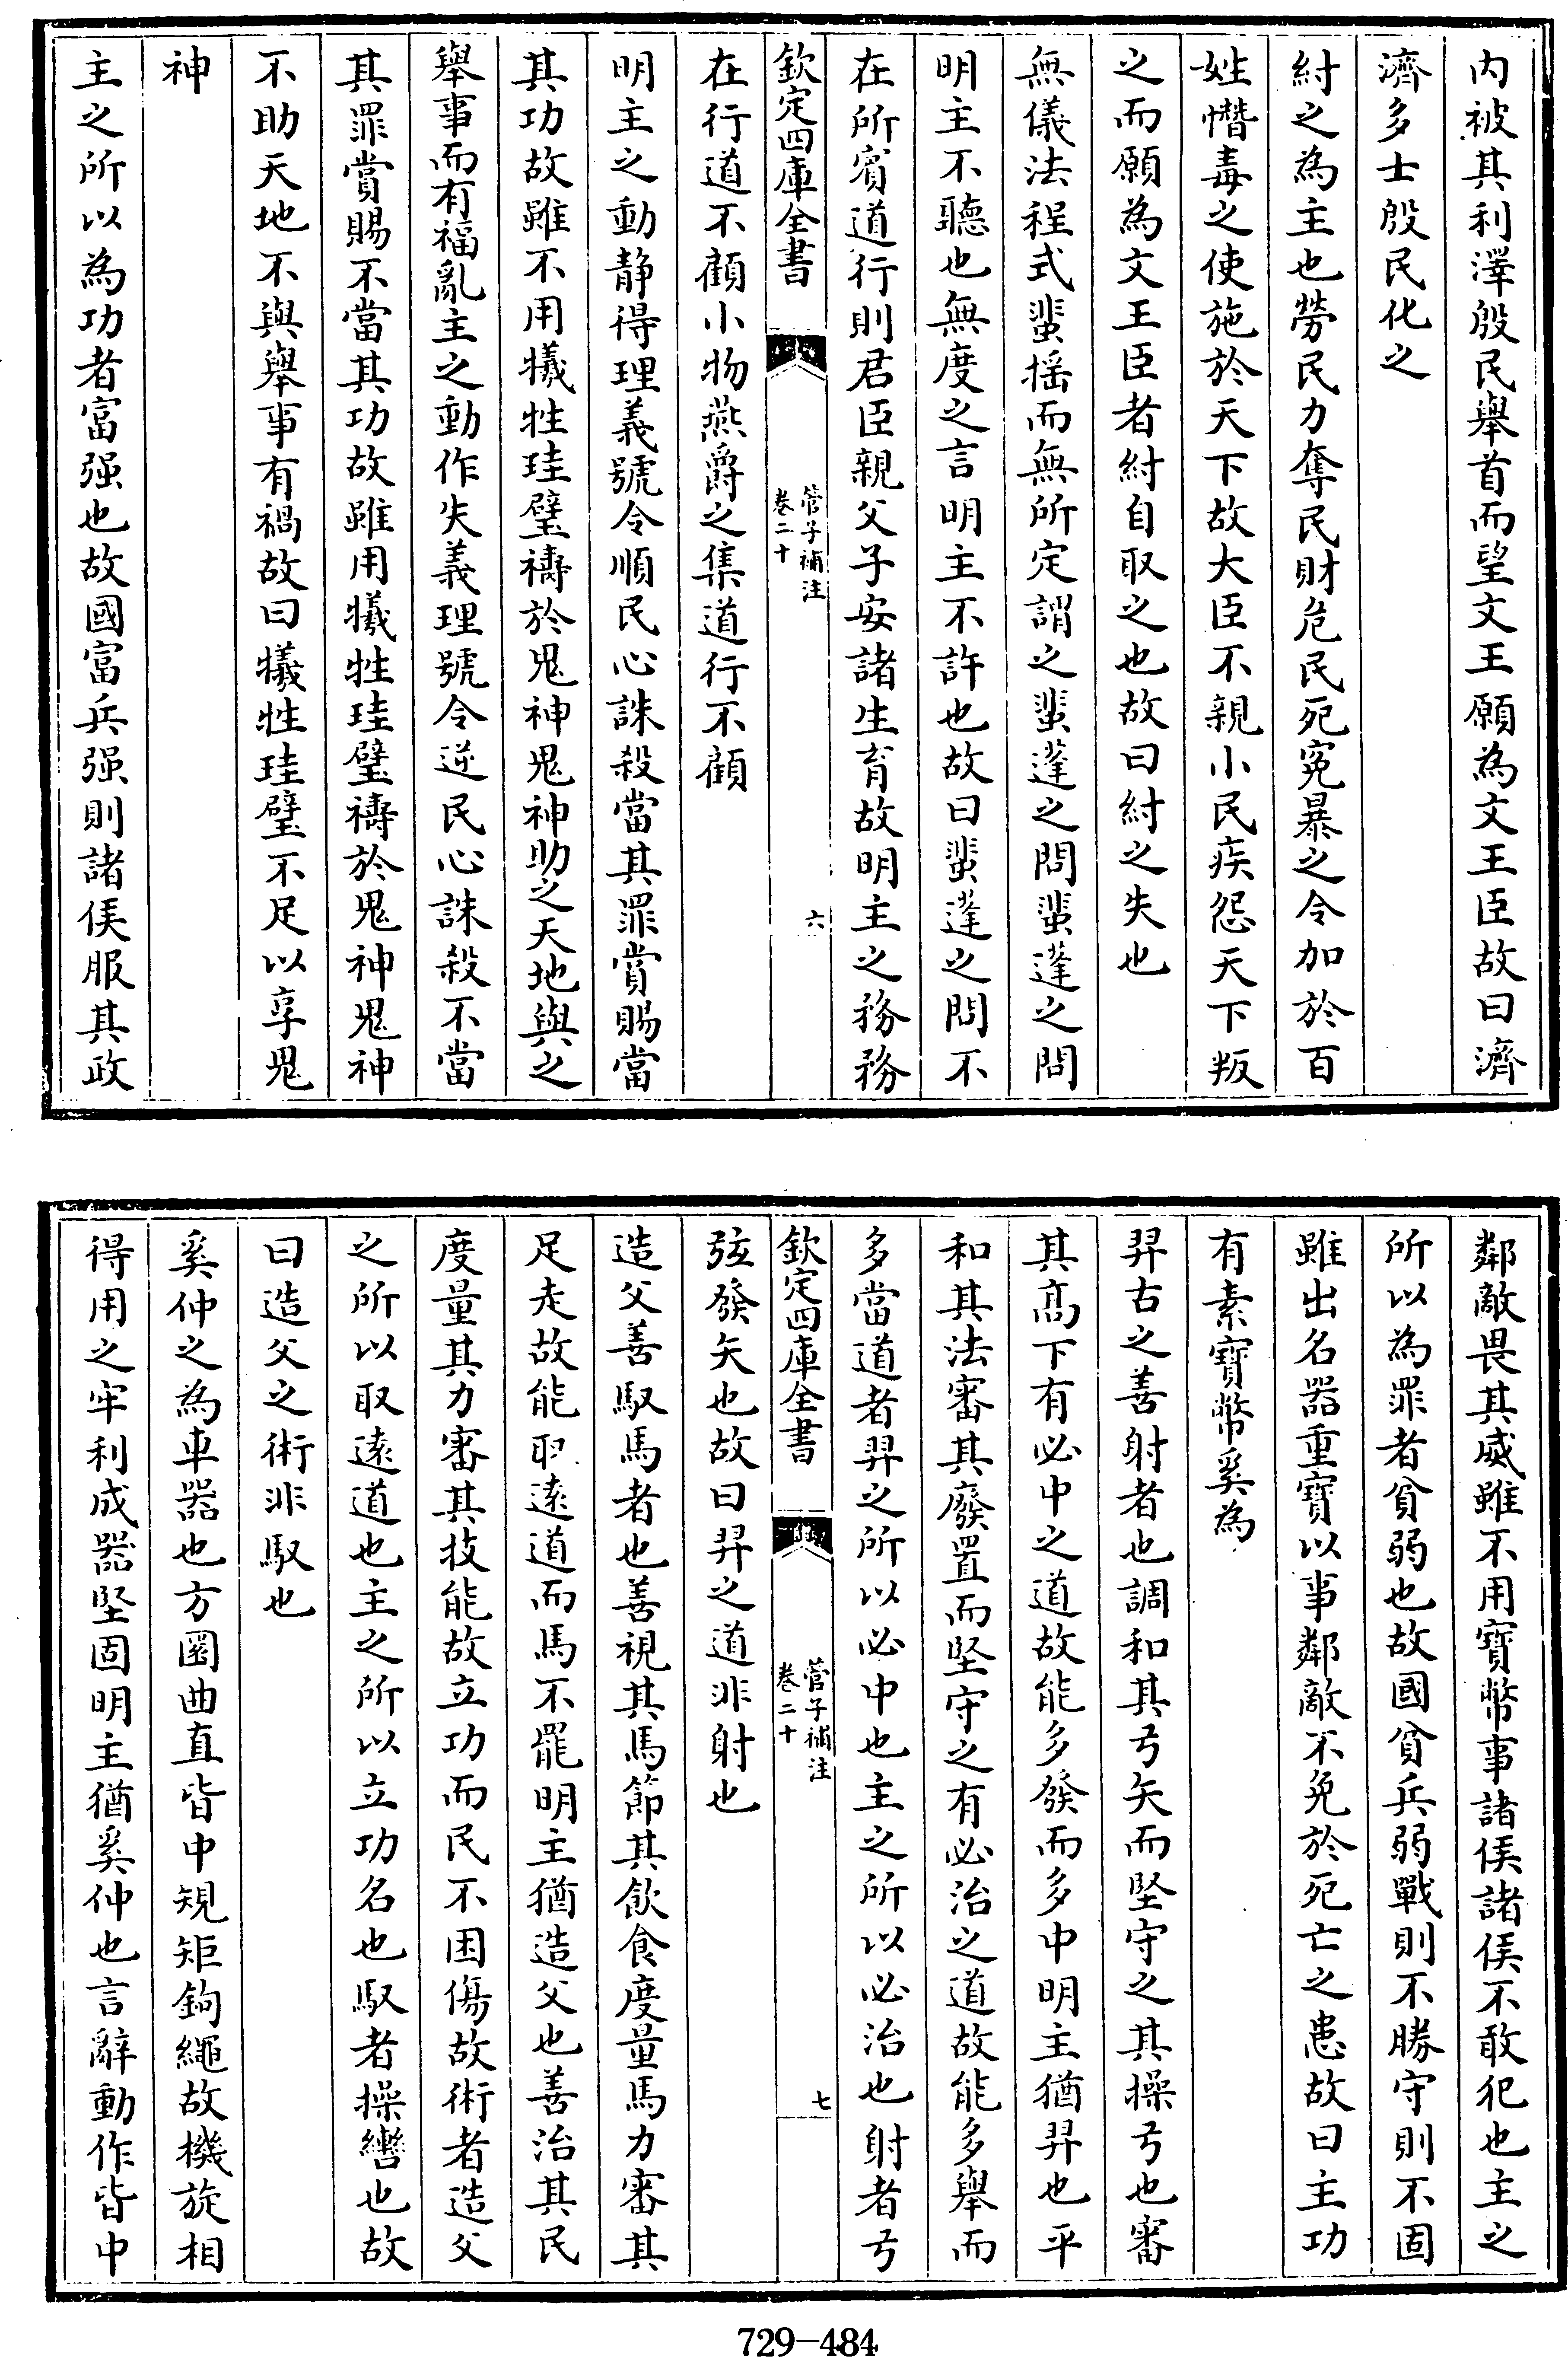 內被其利澤殷民舉首而望文王願為文王臣故曰濟
濟多士殷民化之
紂之為主也勞民力奪民財危民死寃暴之令加於百
姓憯毒之使施於天下故大臣不親小民疾怨天下叛
之而願為文王臣者紂自取之也故曰紂之失也
無儀法程式蜚揺而無所定謂之蜚蓬之問蜚蓬之問
明主不聽也無度之言明主不許也故曰蜚蓬之問不
在所賓道行則君臣親父子安諸生育故明主之務務
欽定四庫全書
管子補注
卷二十
六
在行道不顧小物燕爵之集道行不顧
明主之動静得理義號令順民心誅殺當其罪賞賜當
其功故雖不用犧牲珪璧禱於鬼神鬼神助之天地與之
舉事而有福亂主之動作失義理號令逆民心誅殺不當
其罪賞賜不當其功故雖用犧牲珪璧禱於鬼神鬼神
不助天地不與舉事有禍故曰犧牲珪璧不足以享鬼
神
主之所以為功者富强也故國富兵强則諸侯服其政
鄰敵畏其威雖不用寶幣事諸侯諸侯不敢犯也主之
所以為罪者貧弱也故國貧兵弱戰則不勝守則不固
雖出名器重寶以事鄰敵不免於死亡之患故曰主功
有素寶幣奚為
羿古之善射者也調和其弓矢而堅守之其操弓也審
其髙下有必中之道故能多發而多中明主猶羿也平
和其法審其廢置而堅守之有必治之道故能多舉而
多當道者羿之所以必中也主之所以必治也射者弓
欽定四庫全書
管子補注
卷二十
七
弦發矢也故曰羿之道非射也
造父善馭馬者也善視其馬節其飲食度量馬力審其
足走故能取遠道而馬不罷明主猶造父也善治其民
度量其力審其技能故立功而民不困傷故術者造父
之所以取遠道也主之所以立功名也馭者操轡也故
曰造父之術非馭也
奚仲之為車器也方圜曲直皆中規矩鉤繩故機旋相
得用之牢利成器堅固明主猶奚仲也言辭動作皆中
729-484